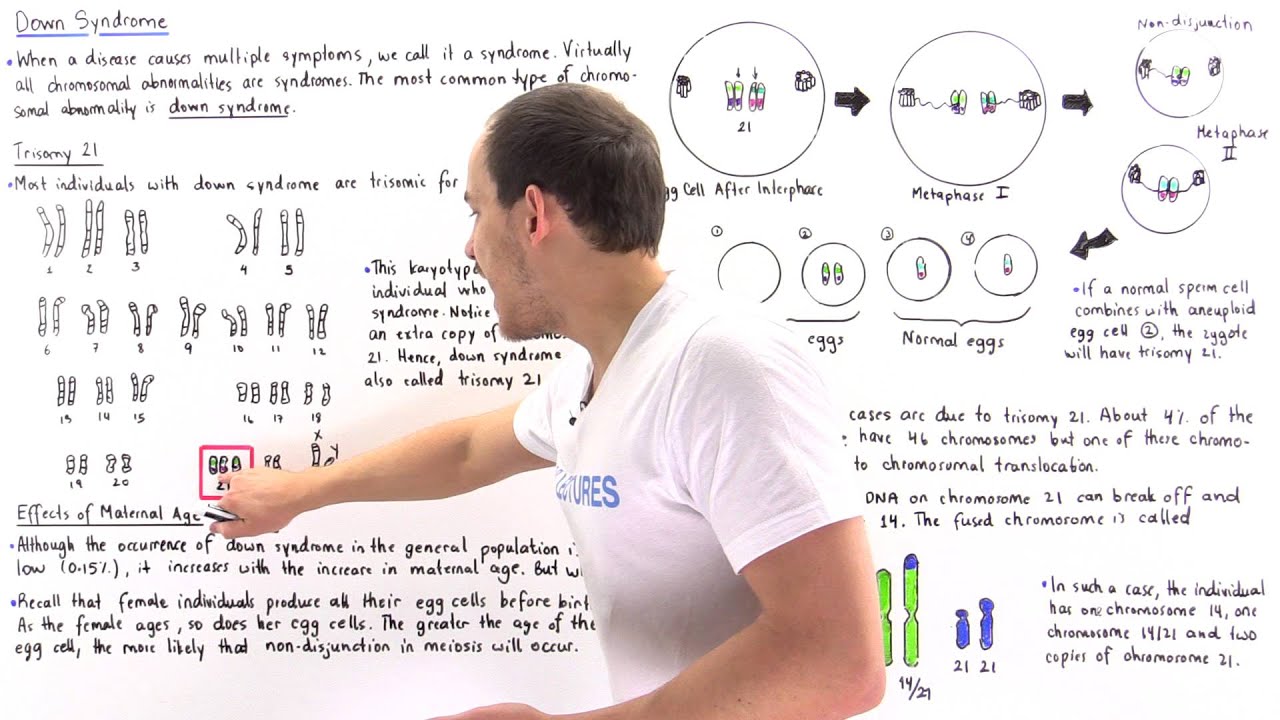 Down Syndrome
• When a disease causes multiple symptoms, we call it a syndrome. Virtually
all chromosomal abnormalities are syndromes. The most common type of chromo-
somal abnormality is down syndrome.
Trisomy 21
• Most individuals with down syndrome are trisomic for
1 2 3 4 5
6 7 8 9 10 11 12
13 14 15 16 17 18
X
Y
19 20
• This karyotype
individual who
syndrome. Notice
an extra copy of
21. Hence, down syndrome
also called trisomy 21
Effects of Maternal Age
• Although the occurrence of down syndrome in the general population
low (0.15%), it increases with the increase in maternal age. But
• Recall that female individuals produce all their egg cells before
As the female ages, so does her egg cells. The greater the age of the
egg cell, the more likely that non-disjunction in meiosis will occur.
21
Cell After Interphase
Metaphase I
Non-disjunction
Metaphase
II
1 2 3 4
eggs
Normal eggs
• If a normal sperm cell
combines with aneuploid
egg cell ②, the zygote
will have trisomy 21.
cases are due to trisomy 21. About 4% of the
have 46 chromosomes but one of these chromo-
to chromosomal translocation.
DNA on chromosome 21 can break off and
14. The fused chromosome is called
14/21
21 21
• In such a case, the individual
has one chromosome 14, one
chromosome 14/21 and two
copies of chromosome 21.